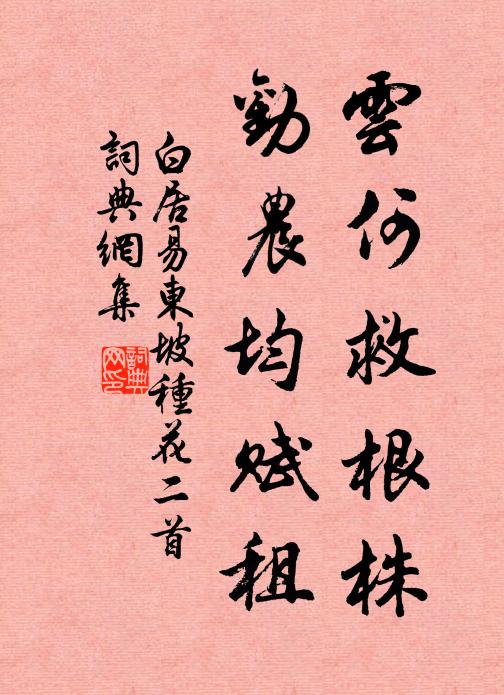 雲何救根株
勸農均賦租
白居易東坡種花二首
詞典網集
詞典網印